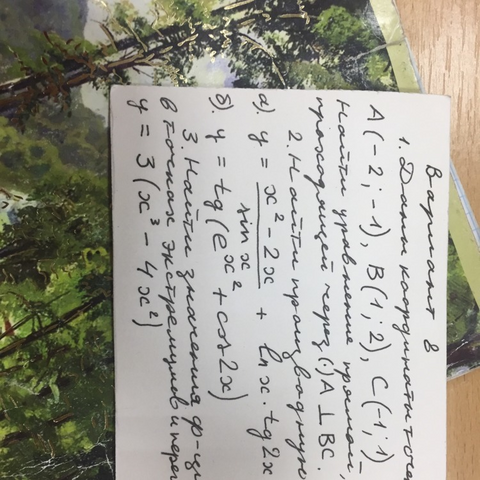 Вариант 8
1. Даны координаты точе
A(-2; -1), B(1; 2), C(-1; 1)
Найти уравнение прямой,
проходящей через (·) A ⊥ BC.
2. Найти производную
а) y = (x² - 2x)/(sin x²) + ln x · tg 2x
б) y = tg(e^(x²) + cos 2x)
3. Найти значения ф-ци
в точках экстремумов и пере
y = 3(x³ - 4x²)